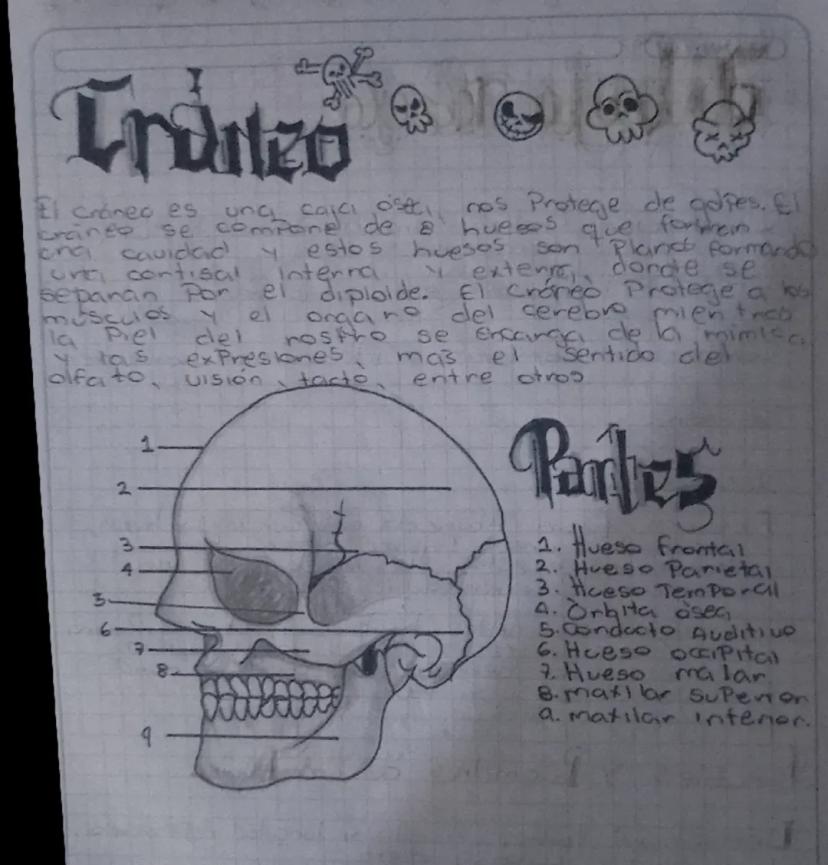 Cráneo
El cráneo es una caja ósea, nos Protege de golpes. El
cráneo se compone de 8 huesos que forman
una cavidad y estos huesos son Planos formando
una cortisal Interna y externa, donde se
separan Por el diploide. El cráneo Protege a los
músculos y el organo del cerebro mientras
la Piel del rostro se encarga de la mimica
y las expresiones, mas el sentido del
olfato, visión, tacto, entre otros
Partes
1
2
3
4
5
6
7
8
9
1. Hueso frontal
2. Hueso Parietal
3. Hueso Temporal
4. Orbita ósea
5. Conducto Auditivo
6. Hueso occipital
7. Hueso malar
8. maxilar superior
9. maxilar inferior.